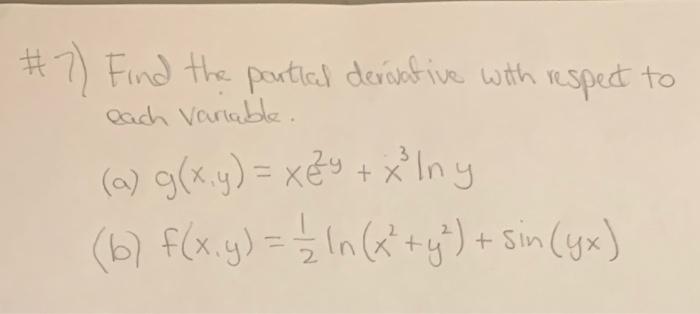 #7) Find the partial derivative with respect to
each variable.
(a) g(x,y) = xe^{2y} + x³ ln y
(b) f(x,y) = ½ ln(x² + y²) + sin(yx)